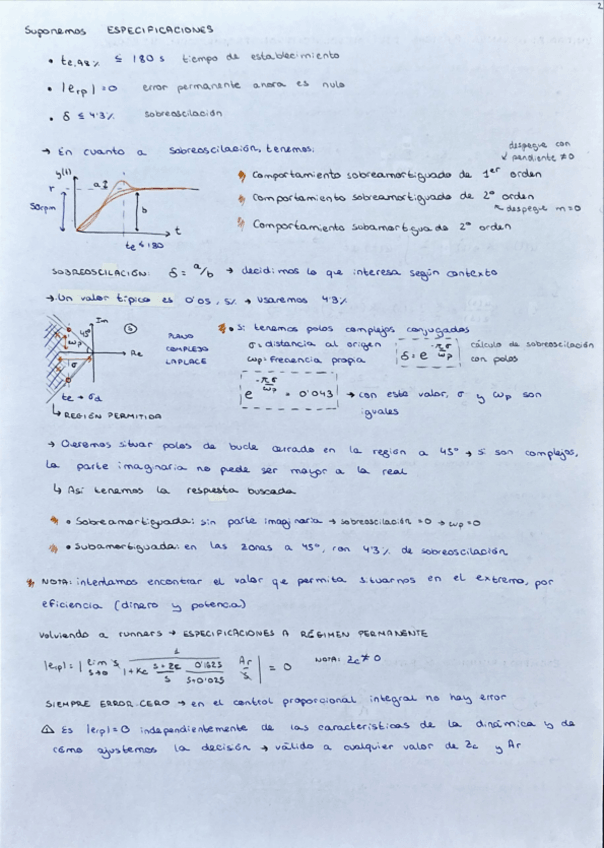 2
Suponemos ESPECIFICACIONES
• te,98% ≤ 180 s tiempo de establecimiento
• |erp| = 0 error permanente ahora es nulo
• δ ≤ 4'3% sobreoscilación
→ En cuanto a sobreoscilación, tenemos:
despegue con
pendiente ≠ 0
y(t)
r
a
b
50rpm
t
te ≤ 180
Comportamiento sobreamortiguado de 1er orden
Comportamiento sobreamortiguado de 2º orden
despegue m=0
Comportamiento subamortigua de 2º orden
SOBREOSCILACIÓN: δ = a/b → decidimos lo que interesa según contexto
→ Un valor típico es 0'05, 5% → usaremos 4'3%
Im
45º
ωp
σ
Re
te → σd
↳ REGIÓN PERMITIDA
PLANO
COMPLEJO
LAPLACE
• Si tenemos polos complejos conjugados
σ = distancia al origen
ωp = frecuencia propia
δ = e^(-πσ/ωp)
cálculo de sobreoscilación
con polos
e^(-πσ/ωp) = 0'043 → con este valor, σ y ωp son
iguales
→ Queremos situar polos de bucle cerrado en la región a 45º → si son complejos,
la parte imaginaria no puede ser mayor a la real
↳ Así tenemos la respuesta buscada
• Sobreamortiguada: sin parte imaginaria → sobreoscilación = 0 → ωp = 0
• Subamortiguada: en las zonas a 45º, con 4'3% de sobreoscilación
* NOTA: intentamos encontrar el valor que permita situarnos en el extremo, por
eficiencia (dinero y potencia)
Volviendo a runners → ESPECIFICACIONES A RÉGIMEN PERMANENTE
|erp| = | lim s→0 s 1/(1+Kc (s+Zc)/s 0'1625/(s+0'025)) Ar/s | = 0 NOTA: Zc ≠ 0
SIEMPRE ERROR CERO → en el control proporcional integral no hay error
⚠ Es |erp| = 0 independientemente de las características de la dinámica y de
cómo ajustemos la decisión → válido a cualquier valor de Zc y Ar